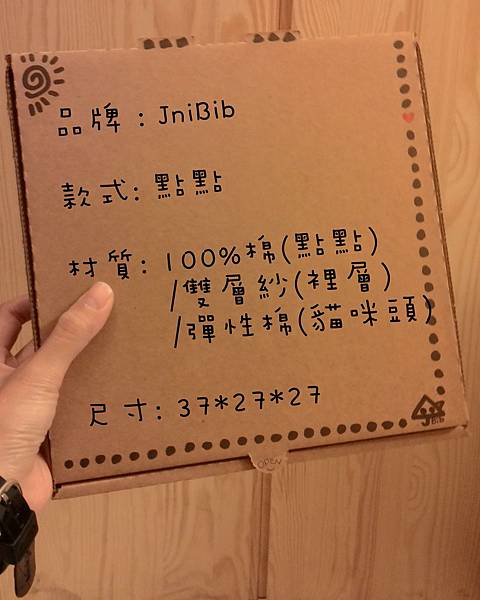 品牌：JniBib
款式：點點
材質：100%棉(點點)
/雙層紗(裡層)
/彈性棉(貓咪頭)
尺寸：37*27*27
JBib
OPEN